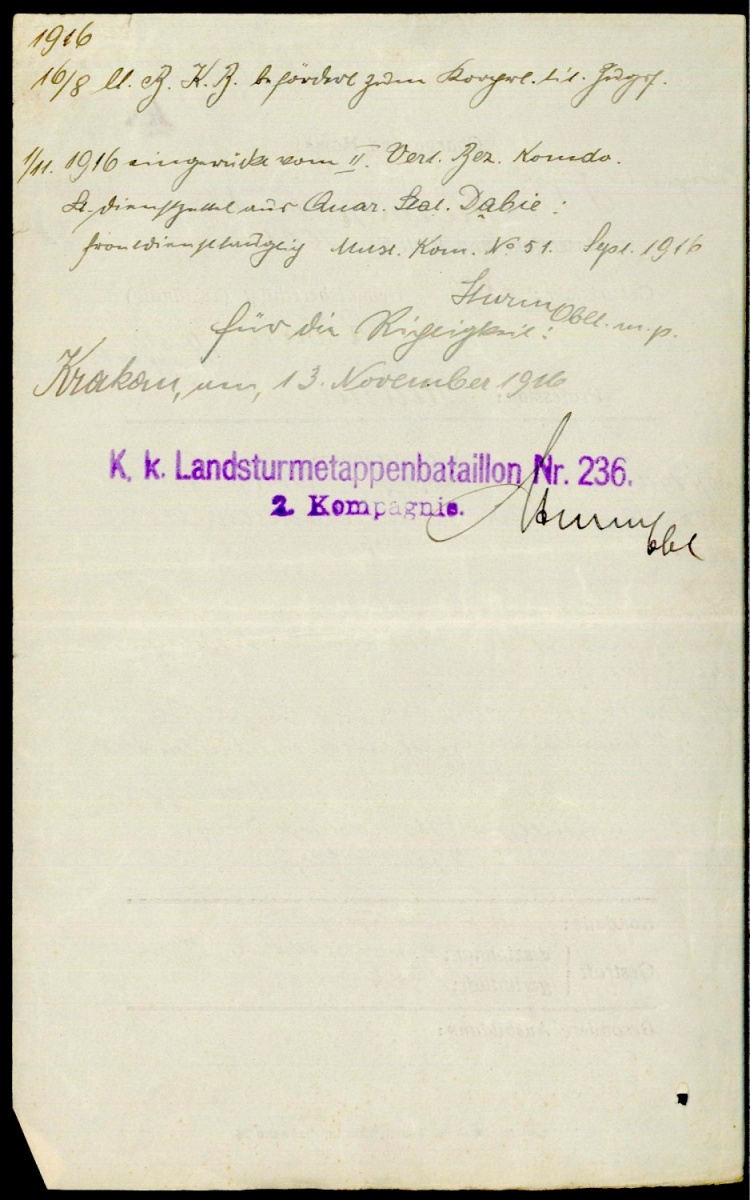 1916
16/8 lt. B. K. B. befördert zum Korprl. tit. Zugsf.
1/11. 1916 eingerückt vom II. Vert. Bez. Komdo.
Lt. Dienstzettel aus Quar. Stat. Dąbie:
frontdiensttauglich Must. Kom. № 51. Sept. 1916
Sturm Oblt. m. p.
für die Richtigkeit:
Krakau, am, 13. November 1916
K. k. Landsturmetappenbataillon Nr. 236.
2. Kompagnie.
Sturm Oblt